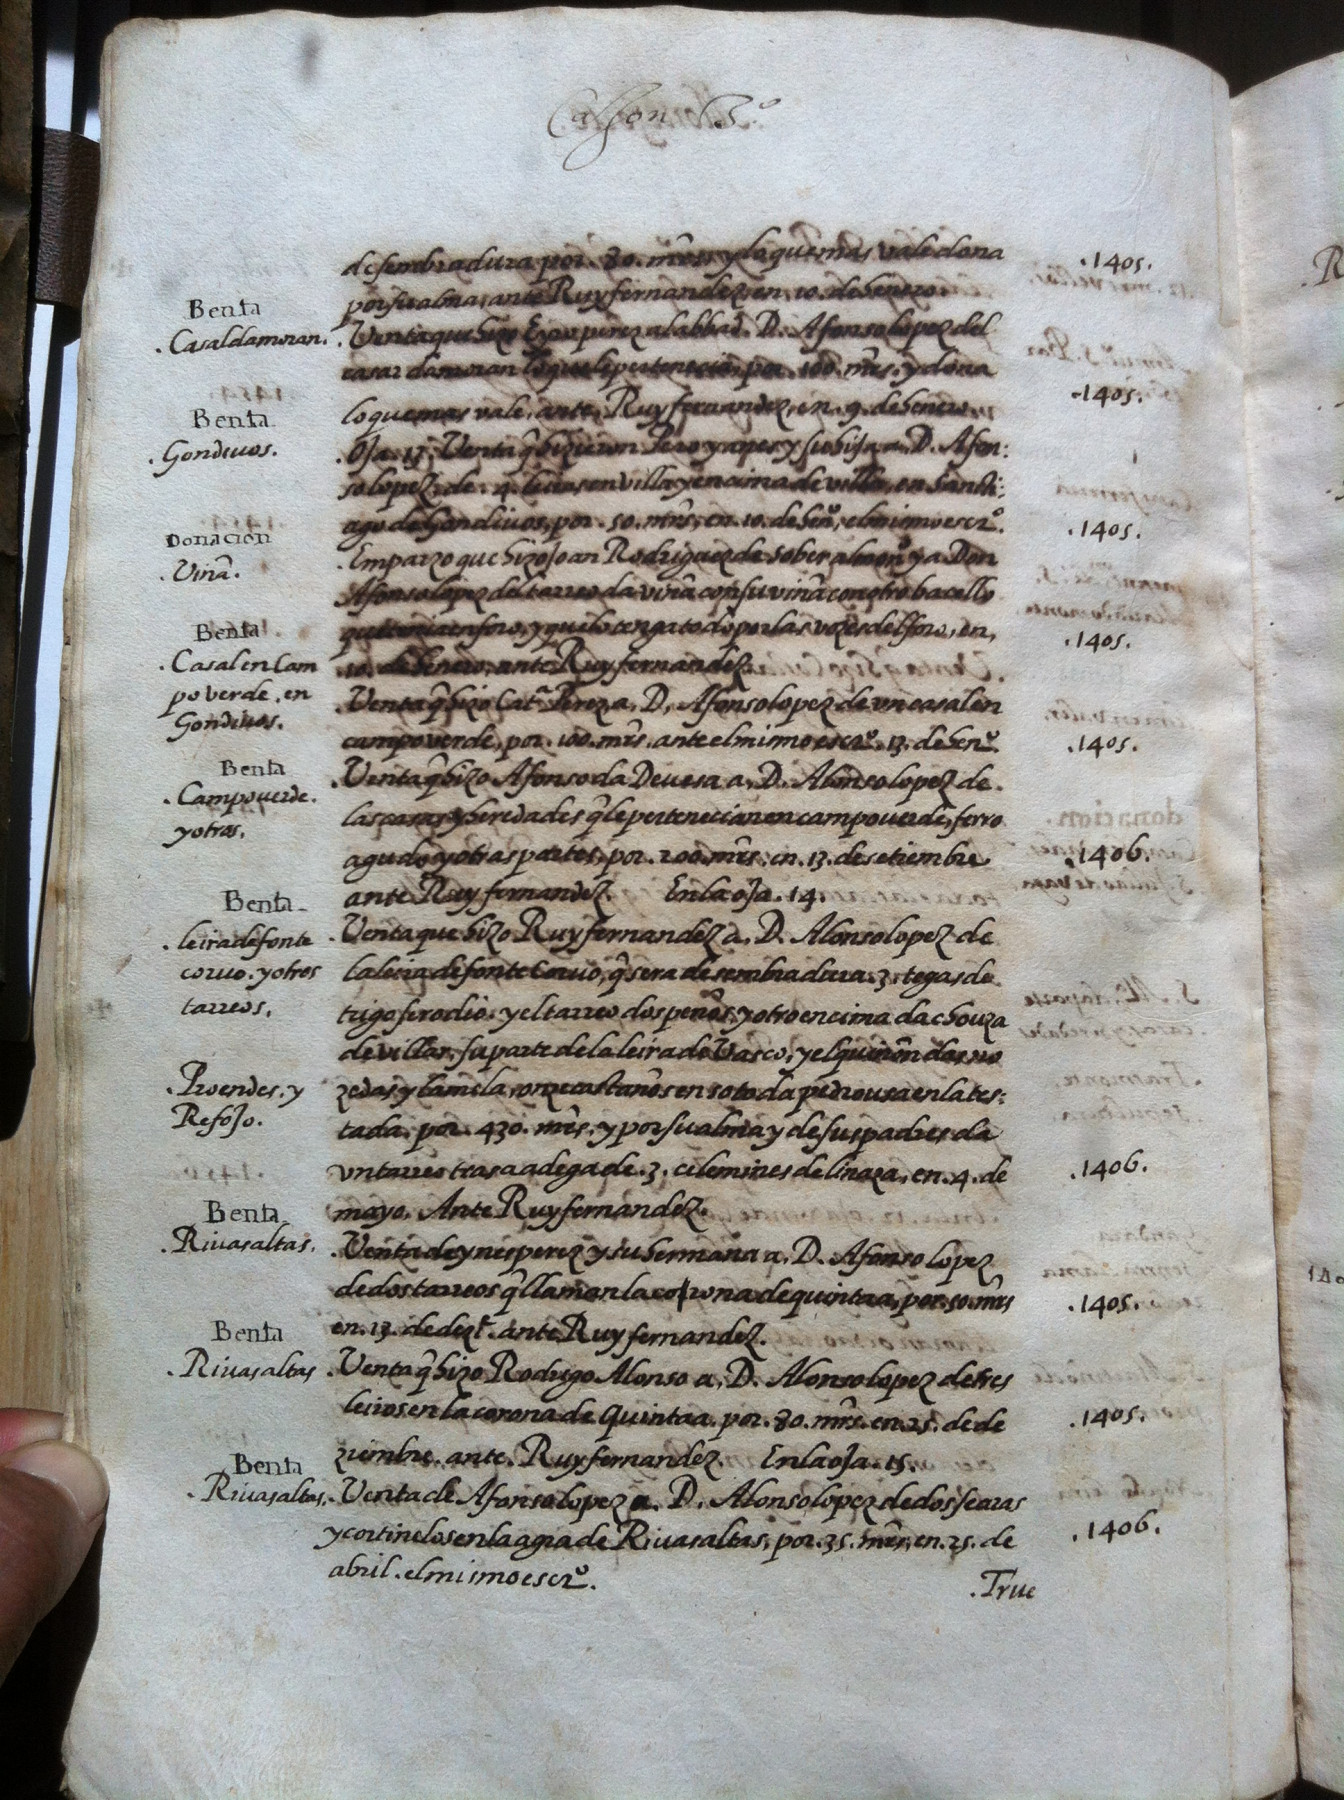 Caxon 3.º
de sembradura por. 80. mrs y lo que mas vale dona
.1405.
por su alma, ante Ruy fernandez, en. 10. de henero.
Benta
.Casaldamoran.
.Venta que hizo perez al abbad. D. Afonso lopez del
casar damoran lo que le pertenecia, por. 100. mrs. y dona
lo que mas vale, ante, Ruy fernandez, en. 9. de henero.
.1405.
Benta
.Gondiuos.
.Oja. 13. Venta q̃ hizieron Pero yanes y su hija a. D. Afon:
so lopez, de. 4. leiras en villa y encima de villa, en Sancti:
ago de Gondiuos, por. 50. mrs, en. 10. de henº, el mismo escrº.
.1405.
Donacion
.Vinã.
.Emparzo que hizo Joan Rodriguez de sober al monº y a Don
Afonso lopez del tarreo da vinã con su vinã con otro bacello
que tenia en foro, y que lo tenga todo por las vozes del foro, en,
.1405.
10. de henero, ante Ruy fernandez.
Benta
.Casal en Cam
po verde. en
Gondiuos.
.Venta q̃ hizo Catª Perez a, D, Afonso lopez de vn casal en
campo verde, por. 100. mrs. ante el mismo escrº. 13. de henº.
.1405.
Benta
.Campo uerde.
y otros.
.Venta q̃ hizo Afonso da Deuesa a, D. Alonso lopez de.
las casas y heredades q̃ le pertenecian en campo uerde, ferro
agudo y otras partes, por. 200. mrs. en. 13. de setiembre
.1406.
ante Ruy fernandez. En la oja. 14.
Benta
.leira de fonte
coruo. y otros
tarreos.
.Venta que hizo Ruy fernandez a. D. Alonso lopez de
la leira de fonte Coruo, q̃ sera de sembradura. 3. tegas de
trigo serodio. y el tarreo dos penos, y otro encima da chouza
de villar, su parte de la leira de Vasco, y el quinõn das no
.Proendes. y
Refojo.
zedas y lamela, onze castanõs en soto da pedrousa en lates:
tada, por. 430. mrs. y por su alma y de sus padres da
vn tarreo tras a adega de. 3. celemines de linaza, en. 4. de
.1406.
mayo. Ante Ruy fernandez.
Benta
.Riuasaltas.
.Venta de ynes perez y su hermana a. D. Afonso lopez
de dos tarreos q̃ llaman la corona de quintaa, por. 50. mrs
.1405.
en. 13. de dezᵉ. ante Ruy fernandez.
Benta
.Riuasaltas
.Venta q̃ hizo Rodrigo Alonso a, D. Alonso lopez de tres
leiros en la corona de Quintaa. por. 80. mrs. en. 25. de de
.1405.
ziembre. ante. Ruy fernandez. En la oja. 15.
Benta
.Riuasaltas.
.Venta de Afonso lopez a. D. Alonso lopez de dos searas
y cortinelos en la agra de Riuasaltas, por. 35. mrs, en. 25. de
.1406.
abril. el mismo escrº.
.True